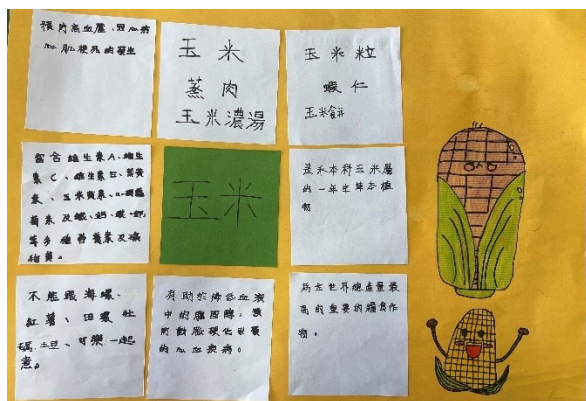 預防高血壓、冠心病
心肌梗死的發生
玉米
蒸肉
玉米濃湯
玉米粒
蝦仁
玉米餅
富含維生素A、維生
素C、維生素E、葉黃
素、玉米黃素、
蘿素及鐵、鈣、
等多種營養素及礦
物質。
玉米
是禾本科玉米屬
的一年生草本植
物
不能跟海螺、
紅薯、田螺、牡
蠣、土豆、可樂一起
煮。
有助於降低血液
中的膽固醇,預
防動脈硬化引發
的心血疾病。
為全世界總產量最
高的重要的糧食作
物。